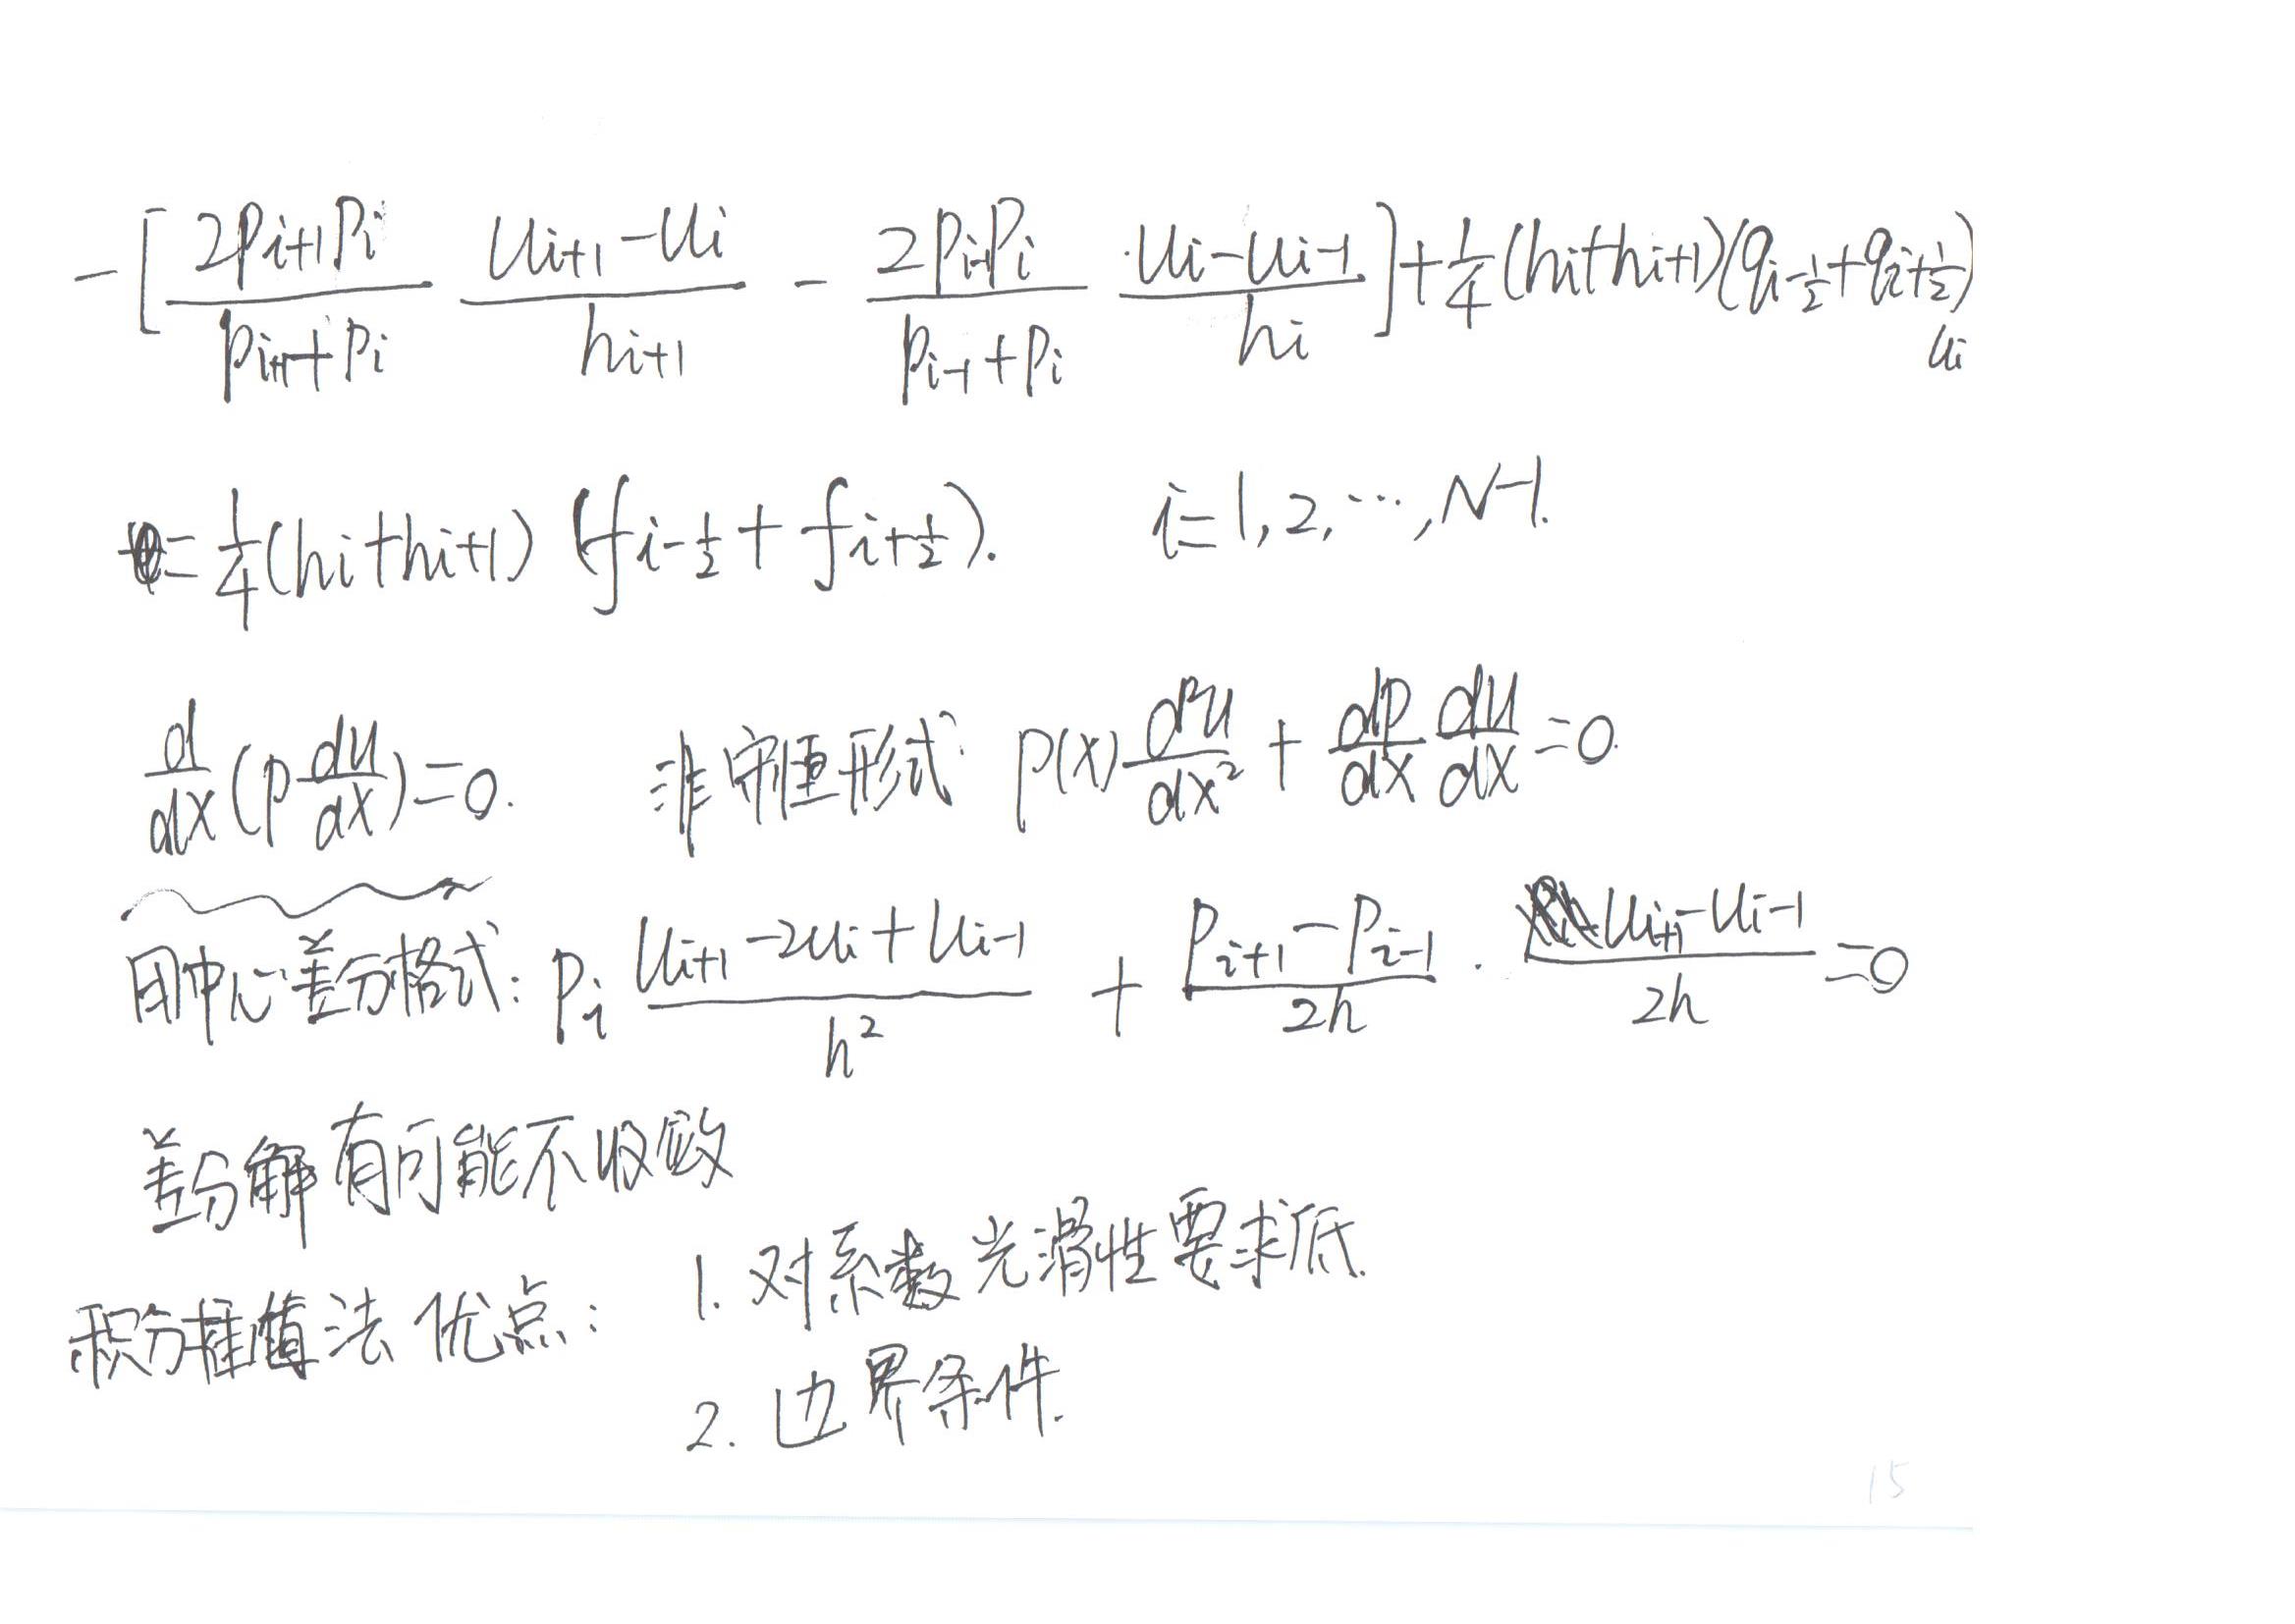 -[ \frac{2p_{i+1}p_i}{p_{i+1}+p_i} \frac{u_{i+1}-u_i}{h_{i+1}} - \frac{2p_{i-1}p_i}{p_{i-1}+p_i} \cdot \frac{u_i-u_{i-1}}{h_i} ] + \frac{1}{4}(h_i+h_{i+1})(q_{i-\frac{1}{2}}+q_{i+\frac{1}{2}})u_i
= \frac{1}{4}(h_i+h_{i+1}) (f_{i-\frac{1}{2}} + f_{i+\frac{1}{2}}). i=1,2,⋯,N-1.
\frac{d}{dx}(p\frac{du}{dx})=0. 非守恒形式: p(x)\frac{d^2u}{dx^2} + \frac{dp}{dx}\frac{du}{dx}=0.
用中心差分格式: p_i \frac{u_{i+1}-2u_i+u_{i-1}}{h^2} + \frac{p_{i+1}-p_{i-1}}{2h} \cdot \frac{u_{i+1}-u_{i-1}}{2h}=0
差分解有可能不收敛
积分插值法优点: 1. 对系数光滑性要求低.
2. 边界条件.
15